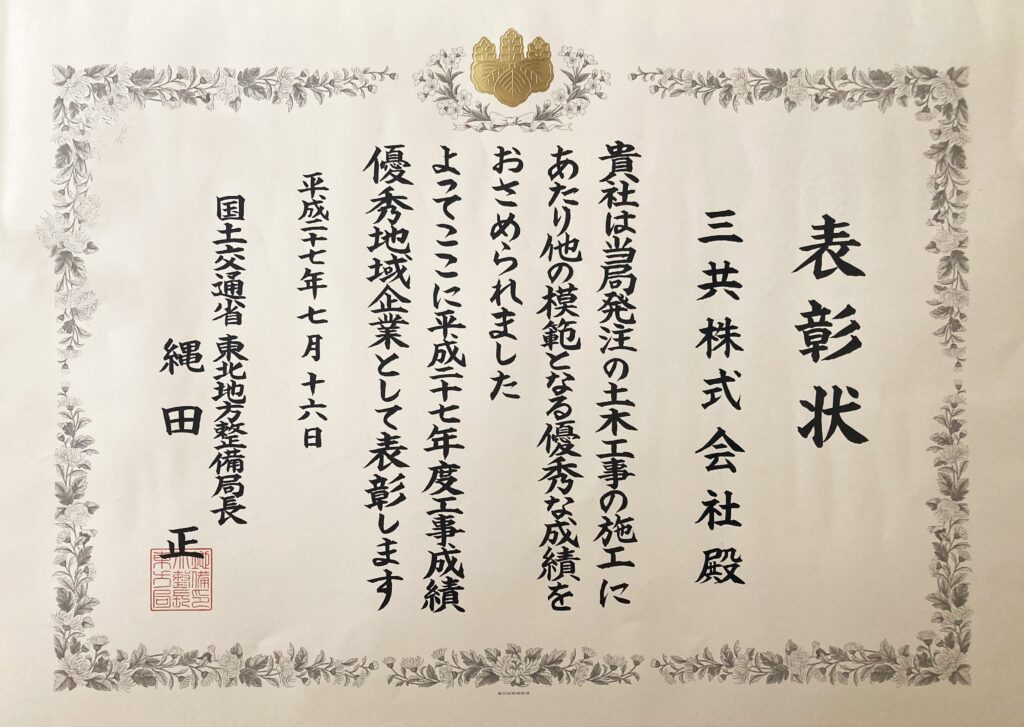 表彰状
三共株式会社殿
貴社は当局発注の土木工事の施工に
あたり他の模範となる優秀な成績を
おさめられました
よってここに平成二十七年度工事成績
優秀地域企業として表彰します
平成二十七年七月十六日
国土交通省 東北地方整備局長
縄田 正